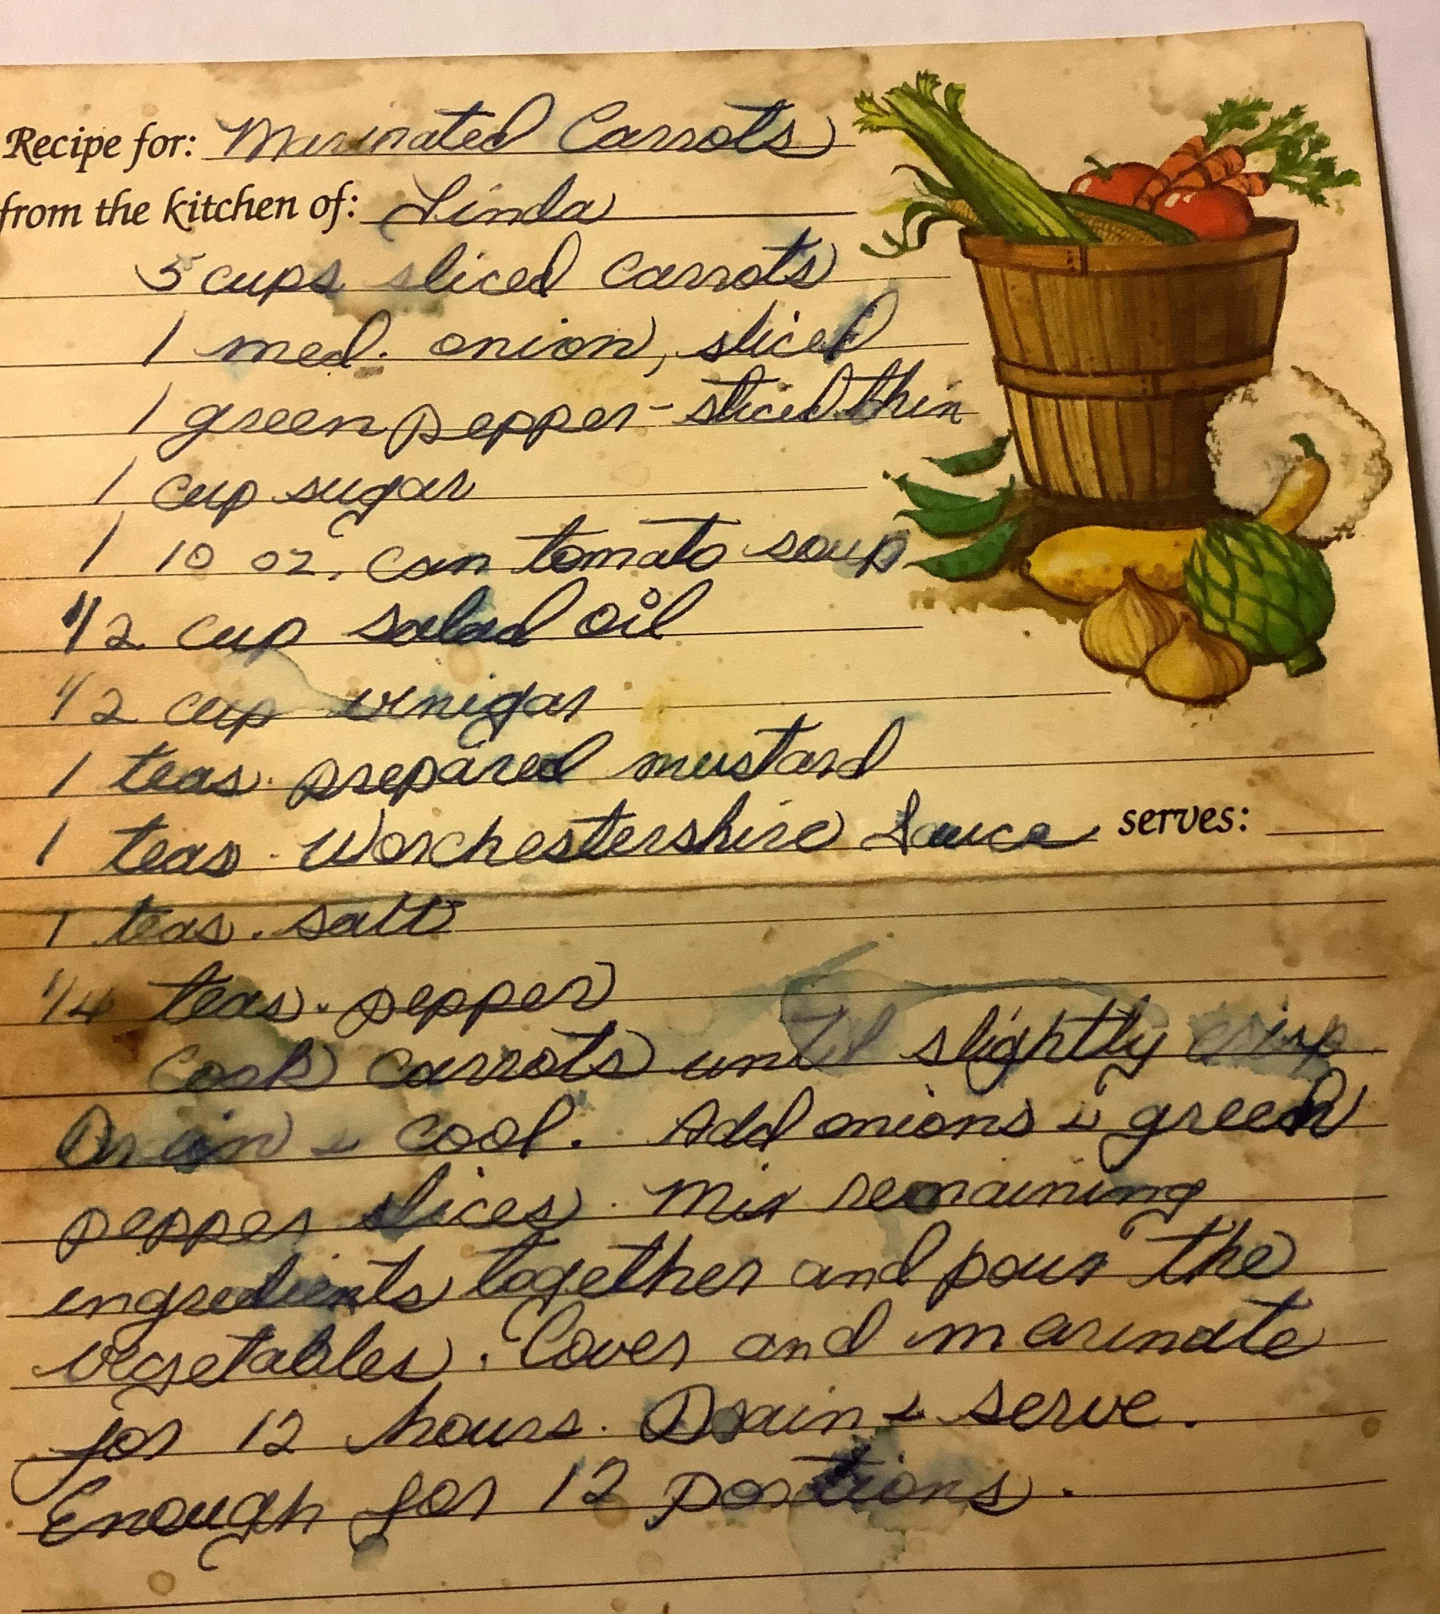 Recipe for: Marinated Carrots
from the kitchen of: Linda
5 cups sliced carrots
1 med. onion, sliced
1 green pepper - sliced thin
1 cup sugar
1 10 oz. can tomato soup
1/2 cup salad oil
1/2 cup vinigar
1 teas. prepared mustard
1 teas. Worchestershire Sauce serves:
1 teas. salt
1/4 teas. pepper
Cook carrots until slightly crisp
Drain & cool. Add onions & green
pepper slices. Mix remaining
ingredients together and pour the
vegetables. Cover and marinate
for 12 hours. Drain & serve.
Enough for 12 portions.